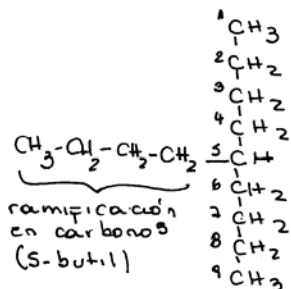 1 CH3
2 CH2
3 CH2
4 CH2
CH3-CH2-CH2-CH2 — 5 CH
6 CH2
7 CH2
8 CH2
9 CH3
ramificación
en carbono 5
(5-butil)